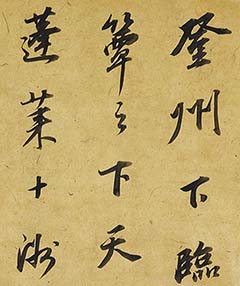 登州下臨
簟之下天
蓬萊十洲